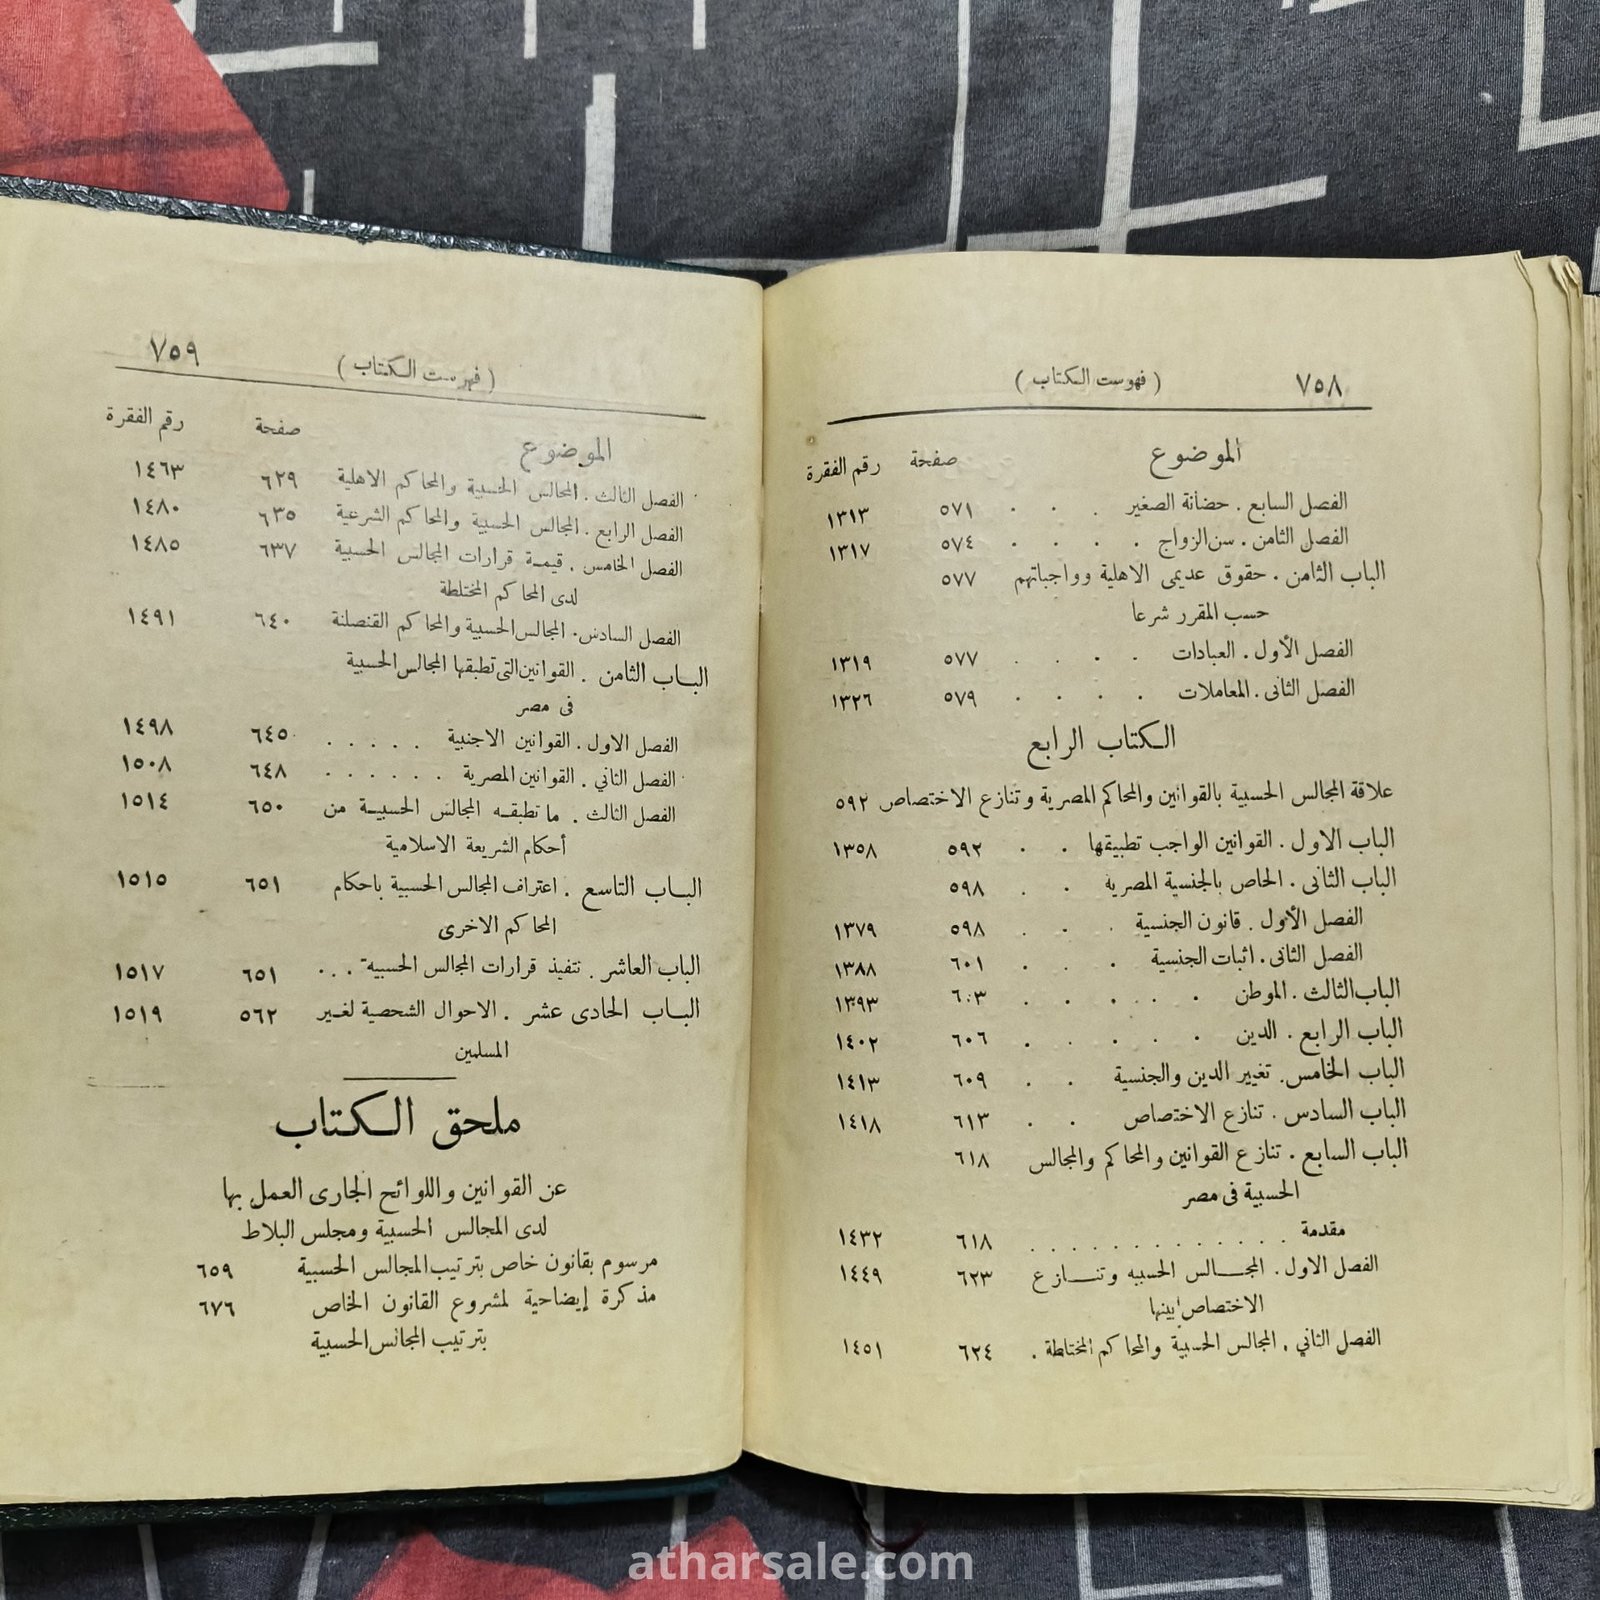 ٧٥٨
( فهرست الكتاب )
الموضوع صفحة رقم الفقرة
الفصل السابع . حضانة الصغير . . . ٥٧١ ١٣١٣
الفصل الثامن . سن الزواج . . . . ٥٧٤ ١٣١٧
الباب الثامن . حقوق عديمى الاهلية وواجباتهم ٥٧٧
حسب المقرر شرعا
الفصل الأول . العبادات . . . . ٥٧٧ ١٣١٩
الفصل الثانى . المعاملات . . . . ٥٧٩ ١٣٢٦
الكتاب الرابع
علاقة المجالس الحسبية بالقوانين والمحاكم المصرية وتنازع الاختصاص ٥٩٢
الباب الاول . القوانين الواجب تطبيقها . . ٥٩٢ ١٣٥٨
الباب الثانى . الخاص بالجنسية المصرية . . ٥٩٨
الفصل الأول . قانون الجنسية . . . ٥٩٨ ١٣٧٩
الفصل الثانى . اثبات الجنسية . . . ٦٠١ ١٣٨٨
الباب الثالث . الموطن . . . . . ٦٠٣ ١٣٩٣
الباب الرابع . الدين . . . . . ٦٠٦ ١٤٠٢
الباب الخامس . تغيير الدين والجنسية . . ٦٠٩ ١٤١٣
الباب السادس . تنازع الاختصاص . . ٦١٣ ١٤١٨
الباب السابع . تنازع القوانين والمحاكم والمجالس ٦١٨
الحسبية فى مصر
مقدمة . . . . . . . . . . . . ٦١٨ ١٤٣٢
الفصل الاول . المجـــالس الحسبيه وتنـــازع ٦٢٣ ١٤٤٩
الاختصاص بينها
الفصل الثاني . المجالس الحسبية والمحاكم المختلطة . ٦٢٤ ١٤٥١
( فهرست الكتاب ) ٧٥٩
الموضوع صفحة رقم الفقرة
الفصل الثالث . المجالس الحسبية والمحاكم الاهلية ٦٢٩ ١٤٦٣
الفصل الرابع . المجالس الحسبية والمحاكم الشرعية ٦٣٥ ١٤٨٠
الفصل الخامس . قيمـة قرارات المجالس الحسبية ٦٣٧ ١٤٨٥
لدى المحاكم المختلطة
الفصل السادس . المجالس الحسبية والمحاكم القنصلية ٦٤٠ ١٤٩١
البـاب الثامن . القوانين التى تطبقها المجالس الحسبية
فى مصر
الفصل الاول . القوانين الاجنبية . . . . . ٦٤٥ ١٤٩٨
الفصل الثاني . القوانين المصرية . . . . . . ٦٤٨ ١٥٠٨
الفصل الثالث . ما تطبقـه المجالس الحسبيـة من ٦٥٠ ١٥١٤
أحكام الشريعة الاسلامية
البـاب التاسع . اعتراف المجالس الحسبية باحكام ٦٥١ ١٥١٥
المحاكم الاخرى
الباب العاشر . تنفيذ قرارات المجالس الحسبيه . . . ٦٥١ ١٥١٧
البـاب الحادى عشر . الاحوال الشخصية لغـير ٥٦٢ ١٥١٩
المسلمين
ملحق الـكتاب
عن القوانين واللوائح الجارى العمل بها
لدى المجالس الحسبية ومجلس البلاط
مرسوم بقانون خاص بترتيب المجالس الحسبية ٦٥٩
مذكرة إيضاحية لمشروع القانون الخاص ٦٧٦
بترتيب المجالس الحسبية
atharsale.com